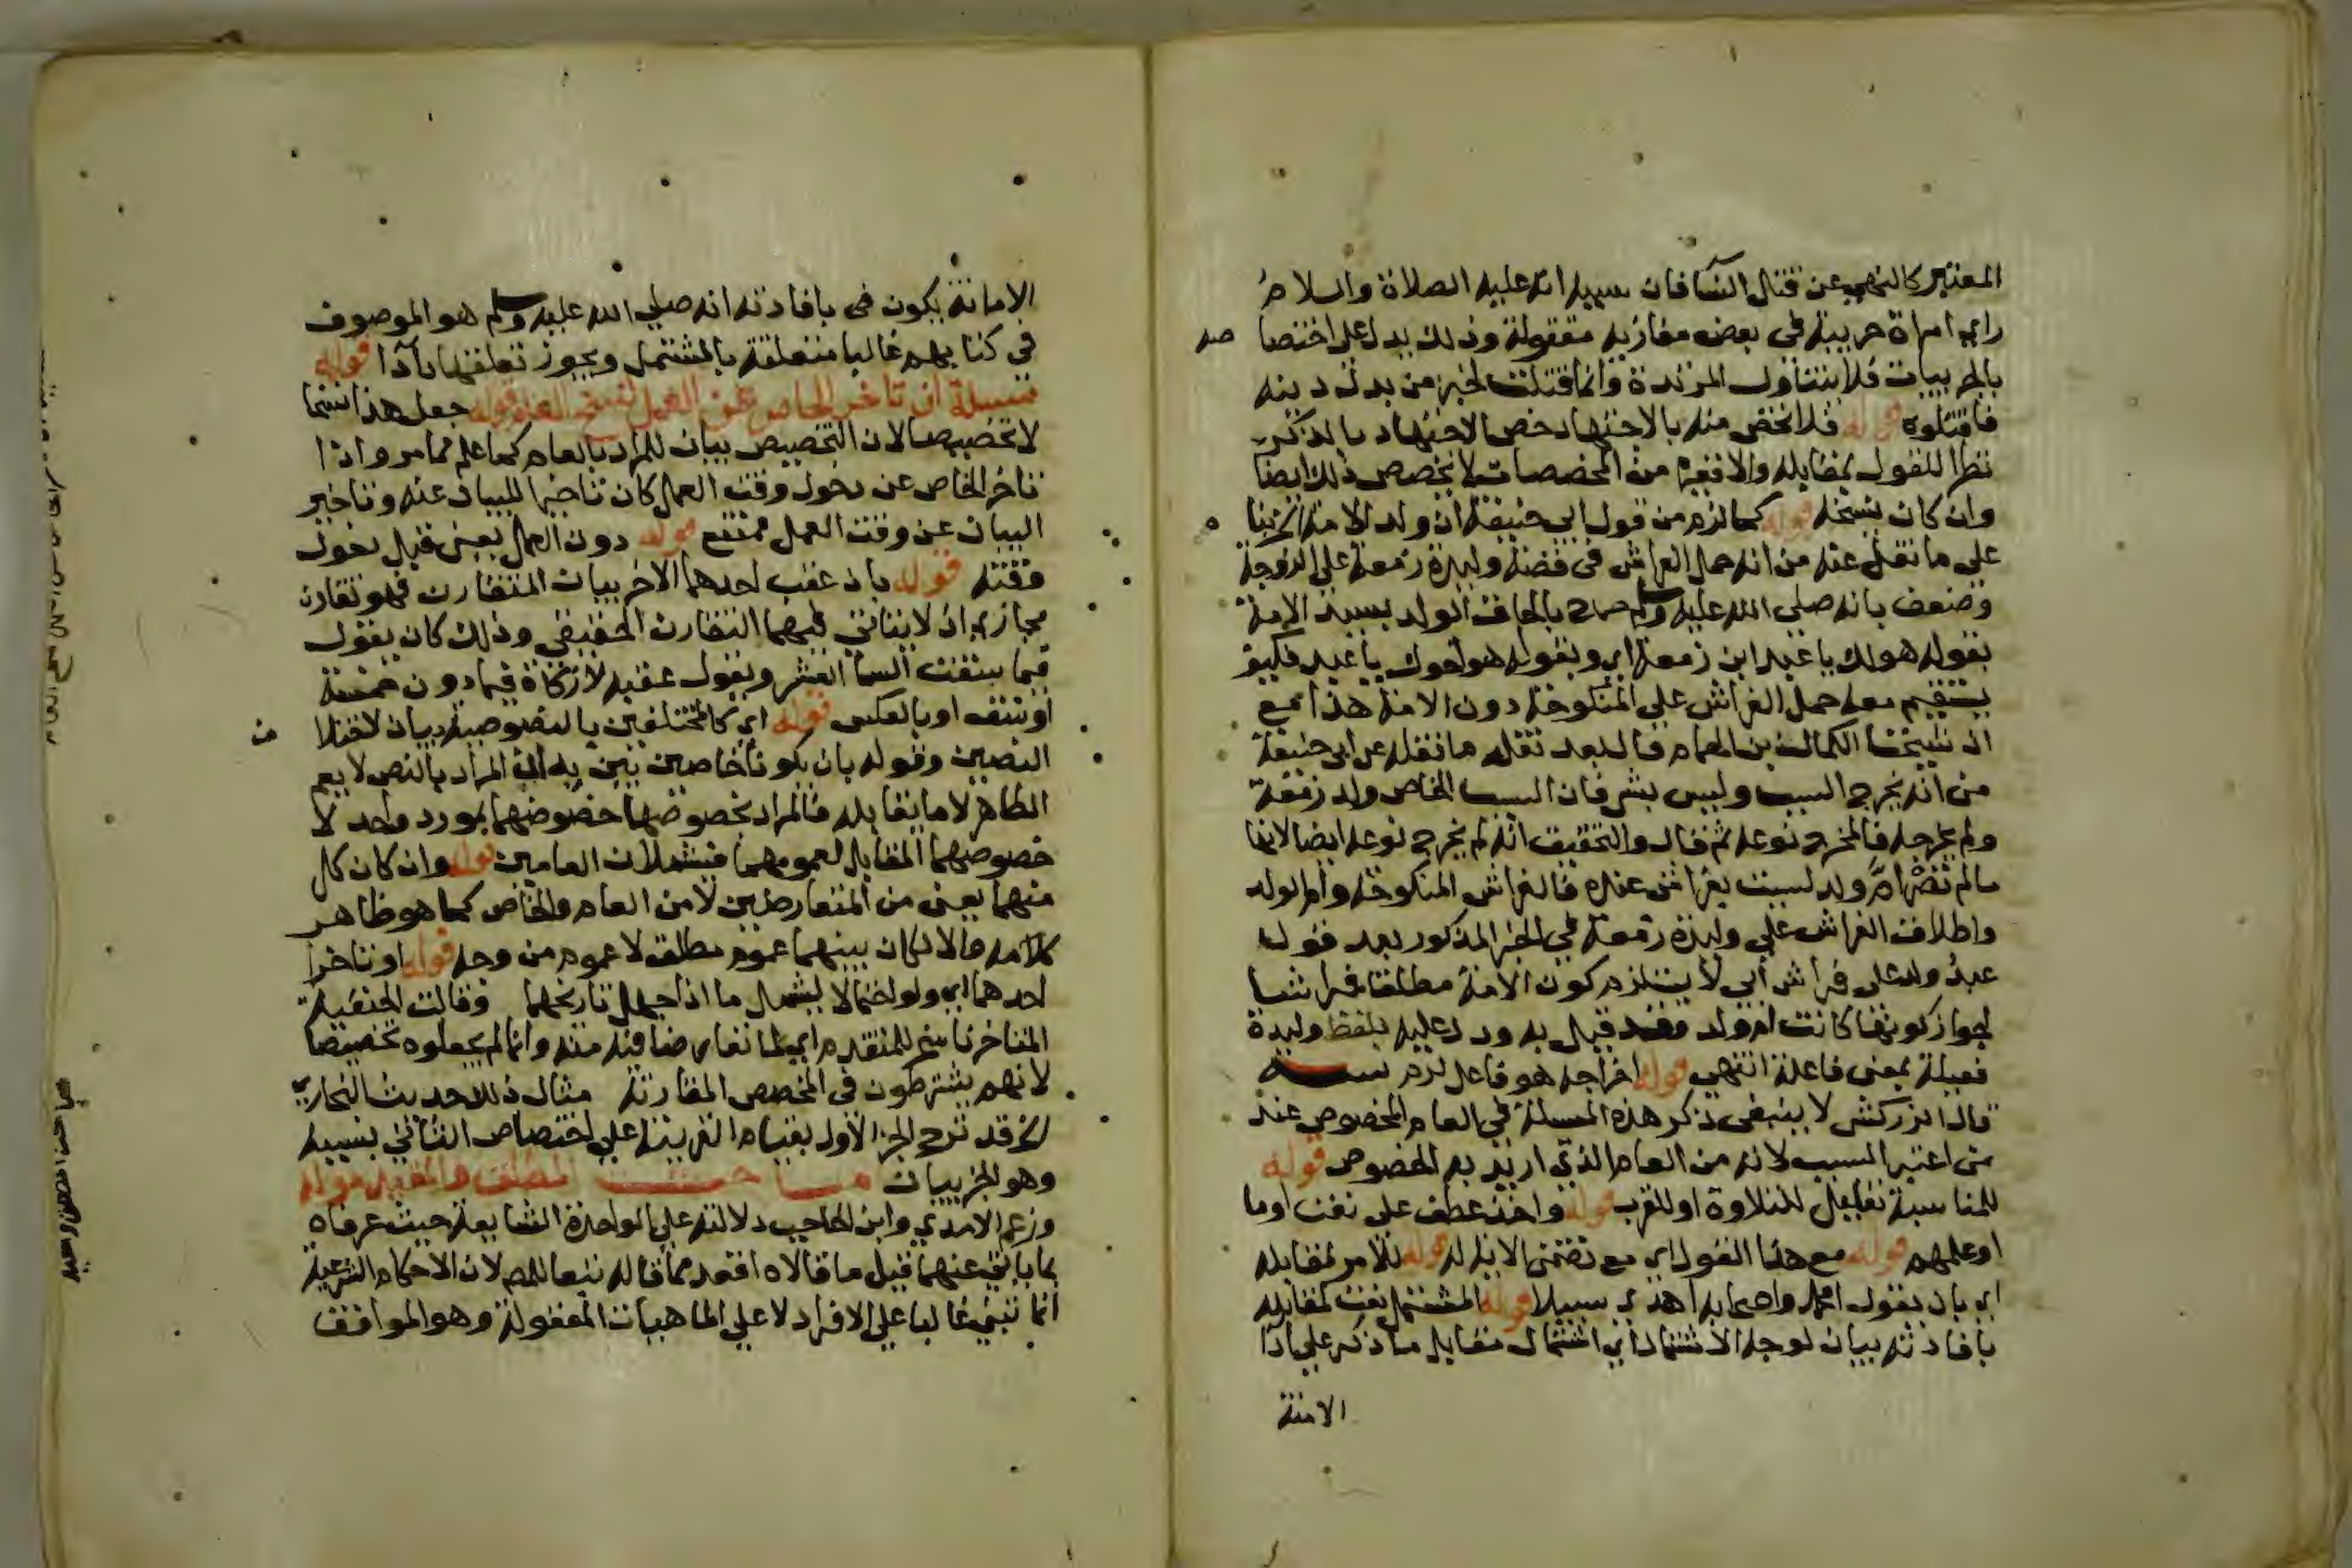 المعتبر كالنهي عن قتال النسا فان سببه انه عليه الصلاة والسلام
راي امراة حربية في بعض مغازيه مقتولة وذلك يدل على اختصا صه
بالحربيات فلا يتناول المرتدة وانما قتلت لخبر من بدل دينه
فاقتلوه قوله فلا يخص منه بالاجتهاد خص الاجتهاد بالذكر
نظرا للقول بمقابله والا فغيره من المخصصات لا يخصص ذلك ايضا
وان كان ينسخه قوله كما لزم من قول ابي حنيفة ان ولد الامة الخ بنا
على ما نقل عنه من انه حمل الفراش في قضية وليدة زمعة على الزوجة
وضعف بانه صلى الله عليه وسلم بالحاق الولد بسيد الامة
بقوله هو لك يا عبد ابن زمعة اي وبقوله هو اخوك يا عبد فكيف
يستقيم معه حمل الفراش على المنكوحة دون الامة هذا مع
ان شيخنا الكمال بن الهمام قال بعد نقله ما نقله عن ابي حنيفة
من انه يخرج السبب وليس بشي فان السبب الخاص ولد زمعة
ولم يخرجه فالمخرج نوعه ثم قال والتحقيق انه لم يخرج نوعه ايضا لانها
ما لم تصر ام ولد ليست بفراش عنده فالفراش المنكوحة وام الولد
واطلاق الفراش على وليدة زمعة في الخبر المذكور بعد قول
عبد ولد على فراش ابي لا يستلزم كون الامة مطلقا فراشا
لجواز كونها كانت ام ولد وقد قيل به ودل عليه بلفظ وليدة
فعيلة بمعنى فاعلة انتهى قوله اخراجه هو فاعل لزم
قال الزركشي لا ينبغي ذكر هذه المسلة في العام المخصوص عند
من اعتبر السبب لانه من العام الذي اريد به الخصوص قوله
للمناسبة تعليل للتلاوة او للقرب قوله واخذ عطف على نعت اوما
اوعلمهم قوله مع هذا القول اي مع تضمن الاية له قوله للامر بمقابله
اي بان يقول محمد واصحابه اهدى سبيلا قوله المشتمل نعت لمقابله
بافادته بيان لوجه الاشتمال اي اشتمال مقابل ما ذكر على ادا
الامنة
الامانة يكون في بافادته انه صلى الله عليه وسلم هو الموصوف
في كتابهم غالبا متعلقة بالمشتمل ويجوز تعلقها بادا قوله
مسيلة ان تاخر الخاص عن العمل نسخ العام قوله جعل هذا نسخا
لا تخصيصا لان التخصيص بيان للمراد بالعام كما علم مما مر واذا
تاخر الخاص عن دخول وقت العمل كان تاخيرا للبيان عنه وتاخير
البيان عن وقت العمل ممتنع قوله دون العمل يعني قبل دخول
وقته قوله بان عقب احدهما الاخر بيان المتقارن فهو تقارن
مجازي اذ لا يتاتى فيهما التقارن الحقيقي وذلك كان يقول
فيما سقت السما العشر ويقول عقبه لا زكاة فيما دون خمسة
اوسق او بالعكس قوله اي كالمختلفين بالنصوصية بيان لاختلا ف
النصين وقوله بان يكونا خاصين بين به ان المراد بالنص لا يعم
الظاهر لا ما يقابله فالمراد بخصوصهما خصوصهما بمورد واحد لا
خصوصهما المقابل لعمومهما فيشملان العامين قوله وان كان كل
منهما يعني من المتعارضين لا من العام والخاص كما هو ظاهر
كلامه والا لكان بينهما عموم مطلق لا عموم من وجه قوله او تاخرا
احدهما اي ولو احتمالا ليشمل ما اذا جهل تاريخهما وقالت الحنفية
المتاخر ناسخ للمتقدم اي لما تعارضا فيه منه وانما لم يجعلوه تخصيصا
لانهم يشترطون في المخصص المقارنة مثال ذلك حديث البخاري
لكن قد ترجح الخبر الاول بقيام القرينة على اختصاص الثاني بسببه
وهو الحربيات المطلق والمقيد قوله
وزعم الامدي وابن الحاجب دلالته على الواحدة الشايعة حيث عرفاه
بما ياتي عنهما قيل ما قالاه اقعد مما قاله تبعا للمص لان الاحكام الشرعية
انما تبنى غالبا على الافراد لا على الماهيات المعقولة وهو الموافق